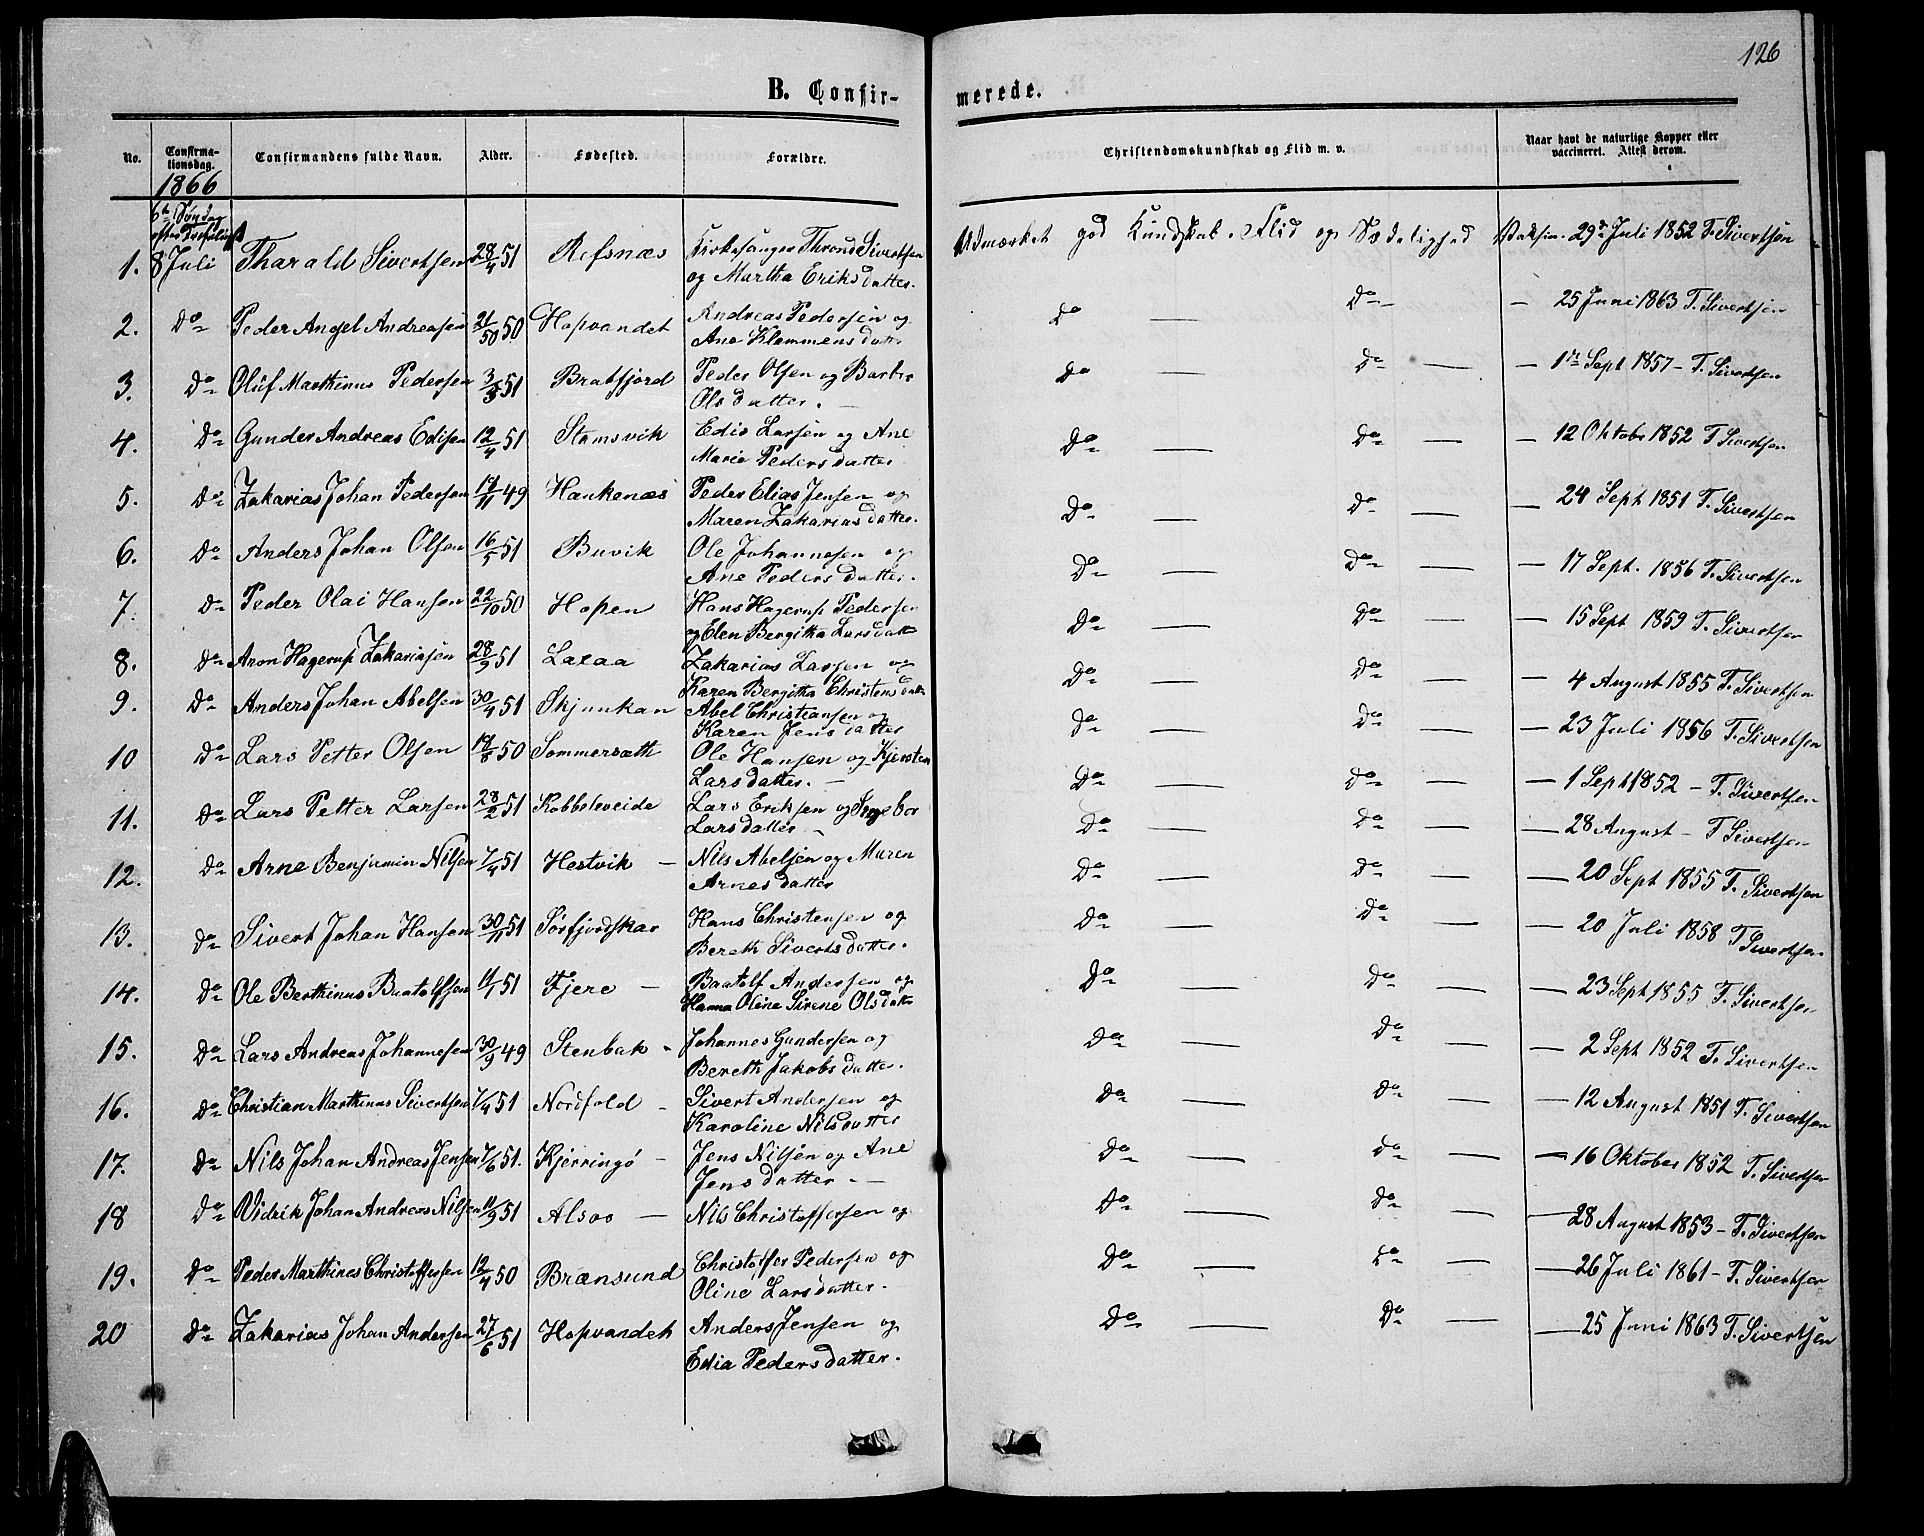 126
B. Confir-
merede.
No.
Confirma-
tionsdag.
Confirmandens fulde Navn.
Alder.
Fødested.
Forældre.
Christendomskundskab og Flid m. v.
Naar havt de naturlige Kopper eller
vaccineret. Attest derom.
1866
6te Søndag
efter Trefoldigh
1. 8 Juli Tharald Sivertsen 28/4 51 Refsnæs Kirkesanger Thrond Sivertsen
og Martha Eriksdatter.
Udmærket god Kundskab. Flid og Sædelighed Vaksin. 29de Juli 1852 T. Sivertsen
2. Do Peder Angel Andreasen 50 Hopvandet Andreas Pedersen og
Ane Klemmensdatte
Do — Do — — 25 Juni 1863 T. Sivertsen
3. Do Oluf Marthinus Pedersen 51 Bratfjord Peder Olsen og Barbr
Olsdatter. —
Do — Do — — 1ste Sept 1857 — T. Sivertsen
4. Do Gunder Andreas Edisen 12/4 51 Stamsvik Edis Larsen og Ane
Marie Pedersdatter
Do — Do — — 12 Oktobr 1852 T Sivertsen
5. Do Zakarias Johan Pedersen 17/11 49 Haukenæs Peder Elias Jensen og
Maren Zakariasdatter.
Do — Do — — 24 Sept 1851 T. Sivertsen
6. Do Anders Johan Olsen 16/5 51 Buvik Ole Johannesen og
Ane Pedersdatter.
Do — Do — — 17 Sept. 1856 T. Sivertsen
7. Do Peder Olai Hansen 22/10 50 Hopen Hans Hagerup Pedersen
og Elen Bergitha Larsdatte
Do — Do — — 15 Sept 1859 T. Sivertsen
8. Do Aron Hagerup Zakariasen 28/9 51 Laxaa Zakarias Larsen og
Karen Bergitha Christensdatte
Do — Do — — 4 August 1855 T. Sivertsen
9. Do Anders Johan Abelsen 30/4 51 Skjunkan Abel Christiansen og
Karen Jensdatter
Do — Do — — 23 Juli 1856 T. Sivertsen
10 Do Lars Petter Olsen 17/8 50 Sommersæth Ole Hansen og Kjersten
Larsdatter. —
Do — Do — — 1 Sept 1852 — T. Sivertsen
11. Do Lars Petter Larsen 28/2 51 Kobbeleveide Lars Eriksen og Ingebor
Larsdatter —
Do — Do — — 28 August — T Sivertsen
12. Do Arne Benjamin Nilsen 7/4 51 Hestvik — Nils Abelsen og Maren
Arnesdatter
Do — Do — — 20 Sept 1855 T. Sivertsen
13. Do Sivert Johan Hansen 30/11 51 Sørfjordskar Hans Christensen og
Bereth Sivertsdatter.
Do — Do — — 20 Juli 1858 T Sivertsen
14. Do Ole Berthinus Baatolfsen 51 Fjere — Baatolf Andersen og
Hanna Oline Sirene Olsdatte
Do — Do — — 23 Sept 1855 T. Sivertsen
15. Do Lars Andreas Johannesen 30/9 49 Stenbak - Johannes Gundersen og
Bereth Jakobsdatter.
Do — Do — — 2 Sept 1852 T. Sivertsen
16. Do Christian Marthinus Sivertsen 7/4 51 Nordfold - Sivert Andersen og
Karoline Nilsdatter
Do — Do — — 12 August 1851 T. Sivertsen
17. Do Nils Johan Andreas Jensen 7/6 51. Kjerringø — Jens Nilsen og Ane
Jensdatter. —
Do — Do — — 16 Oktober 1852 T. Sivertsen
18 Do Vidrik Johan Andreas Nilsen 11/9 51 Alsos — Nils Christoffersen og
Do — Do — — 28 August 1853 — T. Sivertsen
19. Do Peder Marthines Christoffersen 12/4 50 Brænsund Christoffer Pedersen og
Oline Larsdatter.
Do — Do — — 26 Juli 1861 — T. Sivertsen
20 Do Zakarias Johan Andersen 27/6 51 Hopvandet Anders Jensen og
Edia Pedersdatter.
Do — Do — — 25 Juni 1863 T. Sivertsen